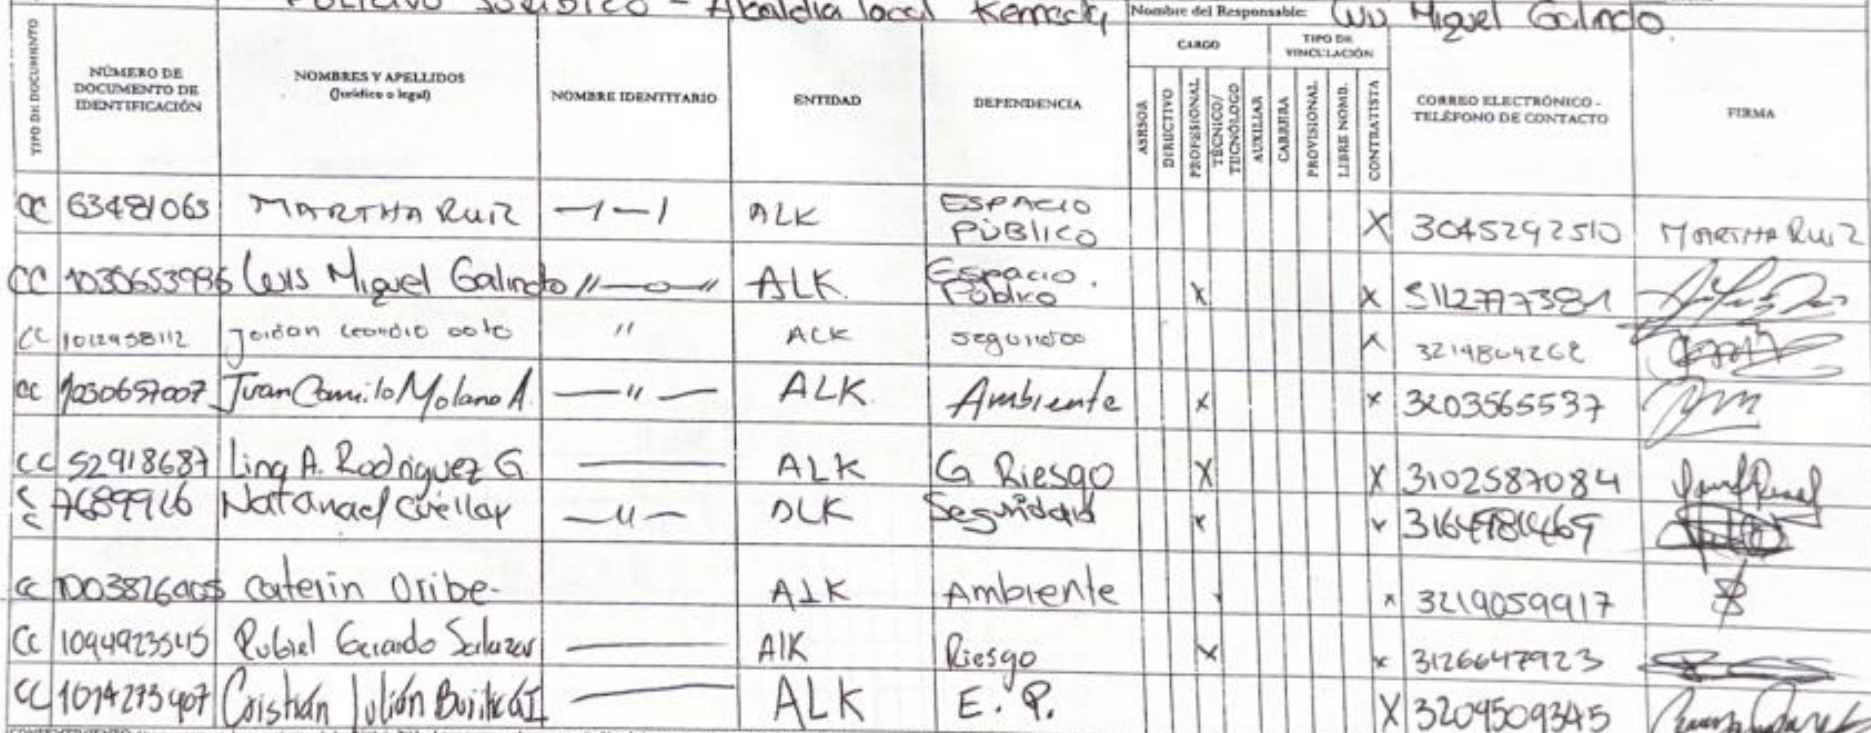 Jurídico - Alcaldía local Kennedy Nombre del Responsable: Luis Miguel Galindo
TIPO DE DOCUMENTO
NÚMERO DE DOCUMENTO DE IDENTIFICACIÓN
NOMBRES Y APELLIDOS (Jurídico o legal)
NOMBRE IDENTITARIO
ENTIDAD
DEPENDENCIA
CARGO
ASESOR
DIRECTIVO
PROFESIONAL
TÉCNICO/ TECNÓLOGO
AUXILIAR
TIPO DE VINCULACIÓN
CARRERA
PROVISIONAL
LIBRE NOMB.
CONTRATISTA
CORREO ELECTRÓNICO - TELÉFONO DE CONTACTO
FIRMA
CC 63481063 MARTHA RUIZ ALK ESPACIO PÚBLICO X 3045292510 MARTHA RUIZ
CC Luis Miguel Galindo ALK Espacio Público X X
CC 1012958112 ALK X
CC 1030657007 Juan Camilo Molano A. ALK Ambiente X X 3203565537
CC 52918687 Lina A. Rodriguez G ALK G Riesgo X X 3102587084
Natanael Cuéllar DLK Seguridad X X
CC Caterin Uribe ALK Ambiente X 3219059917
CC Rubiel Gerardo Salazar AlK Riesgo X X 3126647923
CC Cristián Julián ALK E. P. X 3204509345